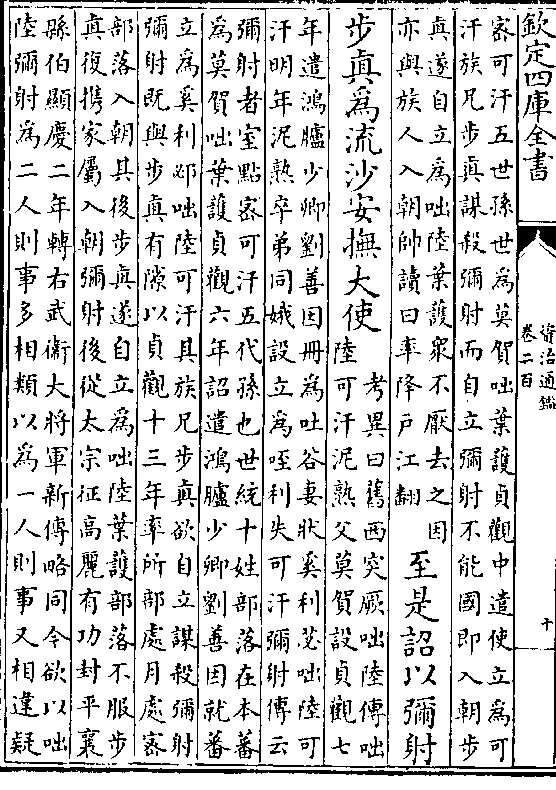 欽定四庫全書
資治通鑑
卷二百
十
密可汗五世孫世為莫賀咄葉護貞觀中遣使立為可
汗族兄步真謀殺彌射而自立彌射不能國即入朝步
真遂自立為咄陸葉護衆不厭去之因
亦與族人入朝帥讀曰率降戶江翻
至是詔以彌射
步真為流沙安撫大使
考異曰舊西突厥咄陸傳咄
陸可汗泥熟父莫賀設貞觀七
年遣鴻臚少卿劉善因冊為吐谷妻狀奚利苾咄陸可
汗明年泥熟卒弟同娥設立為咥利失可汗彌射傳云
彌射者室點密可汗五代孫也世統十姓部落在本蕃
為莫賀咄葉護貞觀六年詔遣鴻臚少卿劉善因就蕃
立為奚利邲咄陸可汗其族兄步真欲自立謀殺彌射
彌射既與步真有隙以貞觀十三年率所部處月處密
部落入朝其後步真遂自立為咄陸葉護部落不服步
真復携家屬入朝彌射後從太宗征高麗有功封平襄
縣伯顯慶二年轉右武衛大將軍新傳略同今欲以咄
陸彌射為二人則事多相類以為一人則事又相違疑